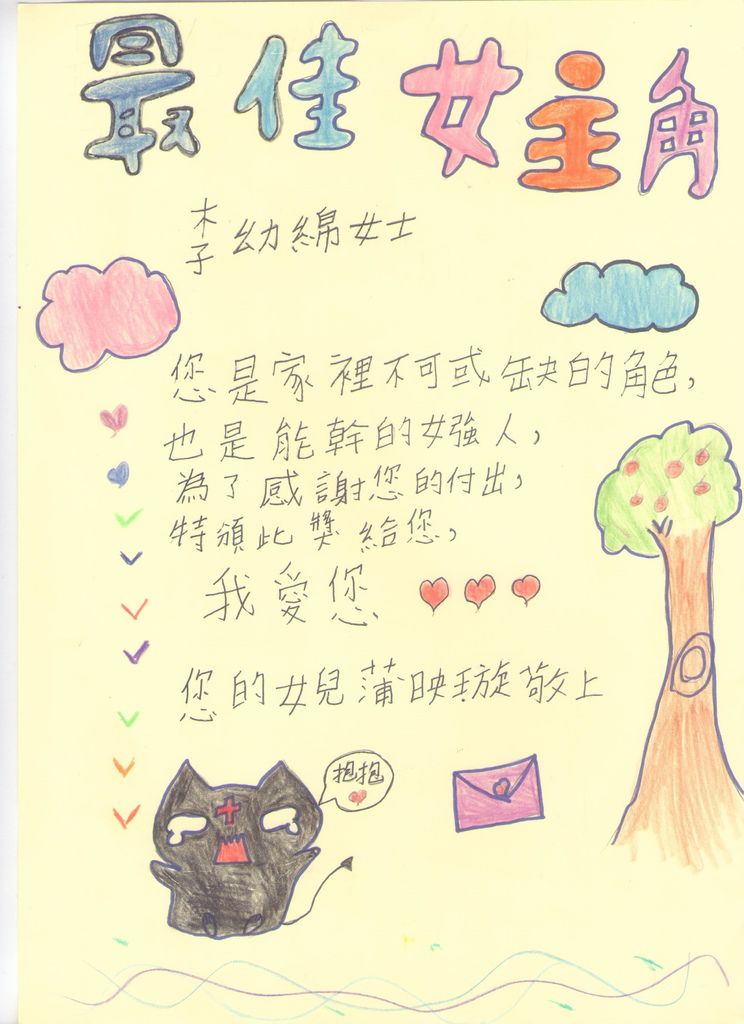 最佳女主角
李幼綿女士
您是家裡不可或缺的角色,
也是能幹的女強人,
為了感謝您的付出,
特頒此獎給您,
我愛您
您的女兒蒲映璇敬上
抱抱